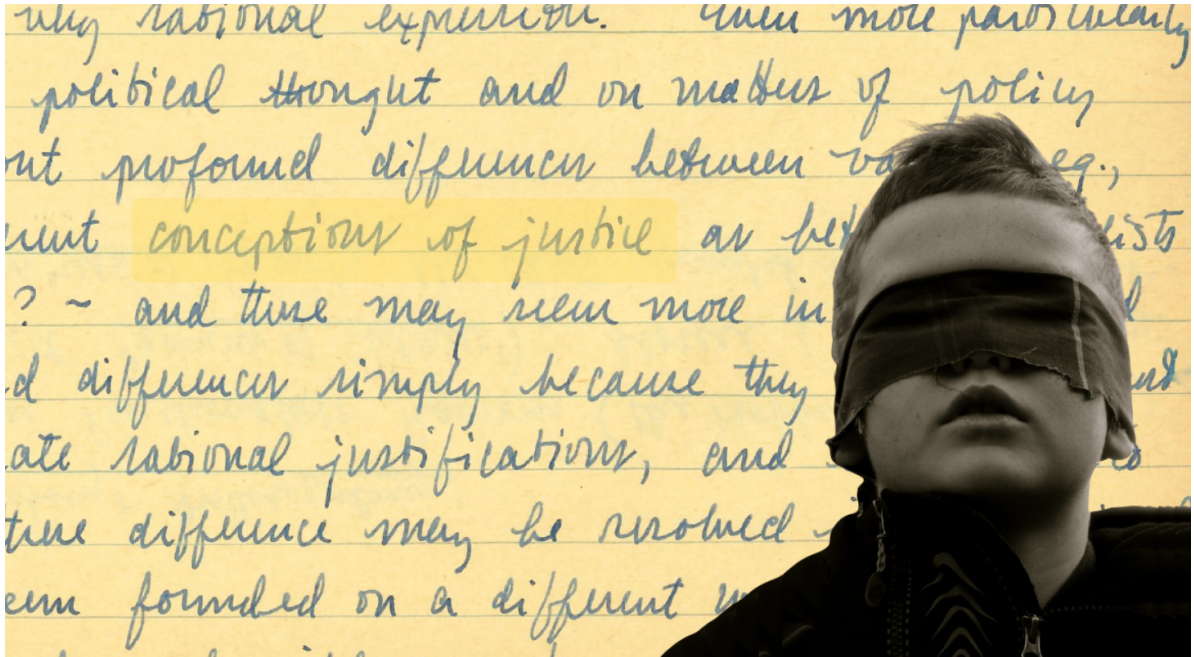 why rational expression. Even more particularly
political thought and on matters of policy
profound differences between eg.,
conceptions of justice as
? ~ and these may seem more in
differences simply because they
rational justifications, and
these difference may be resolved
founded on a different